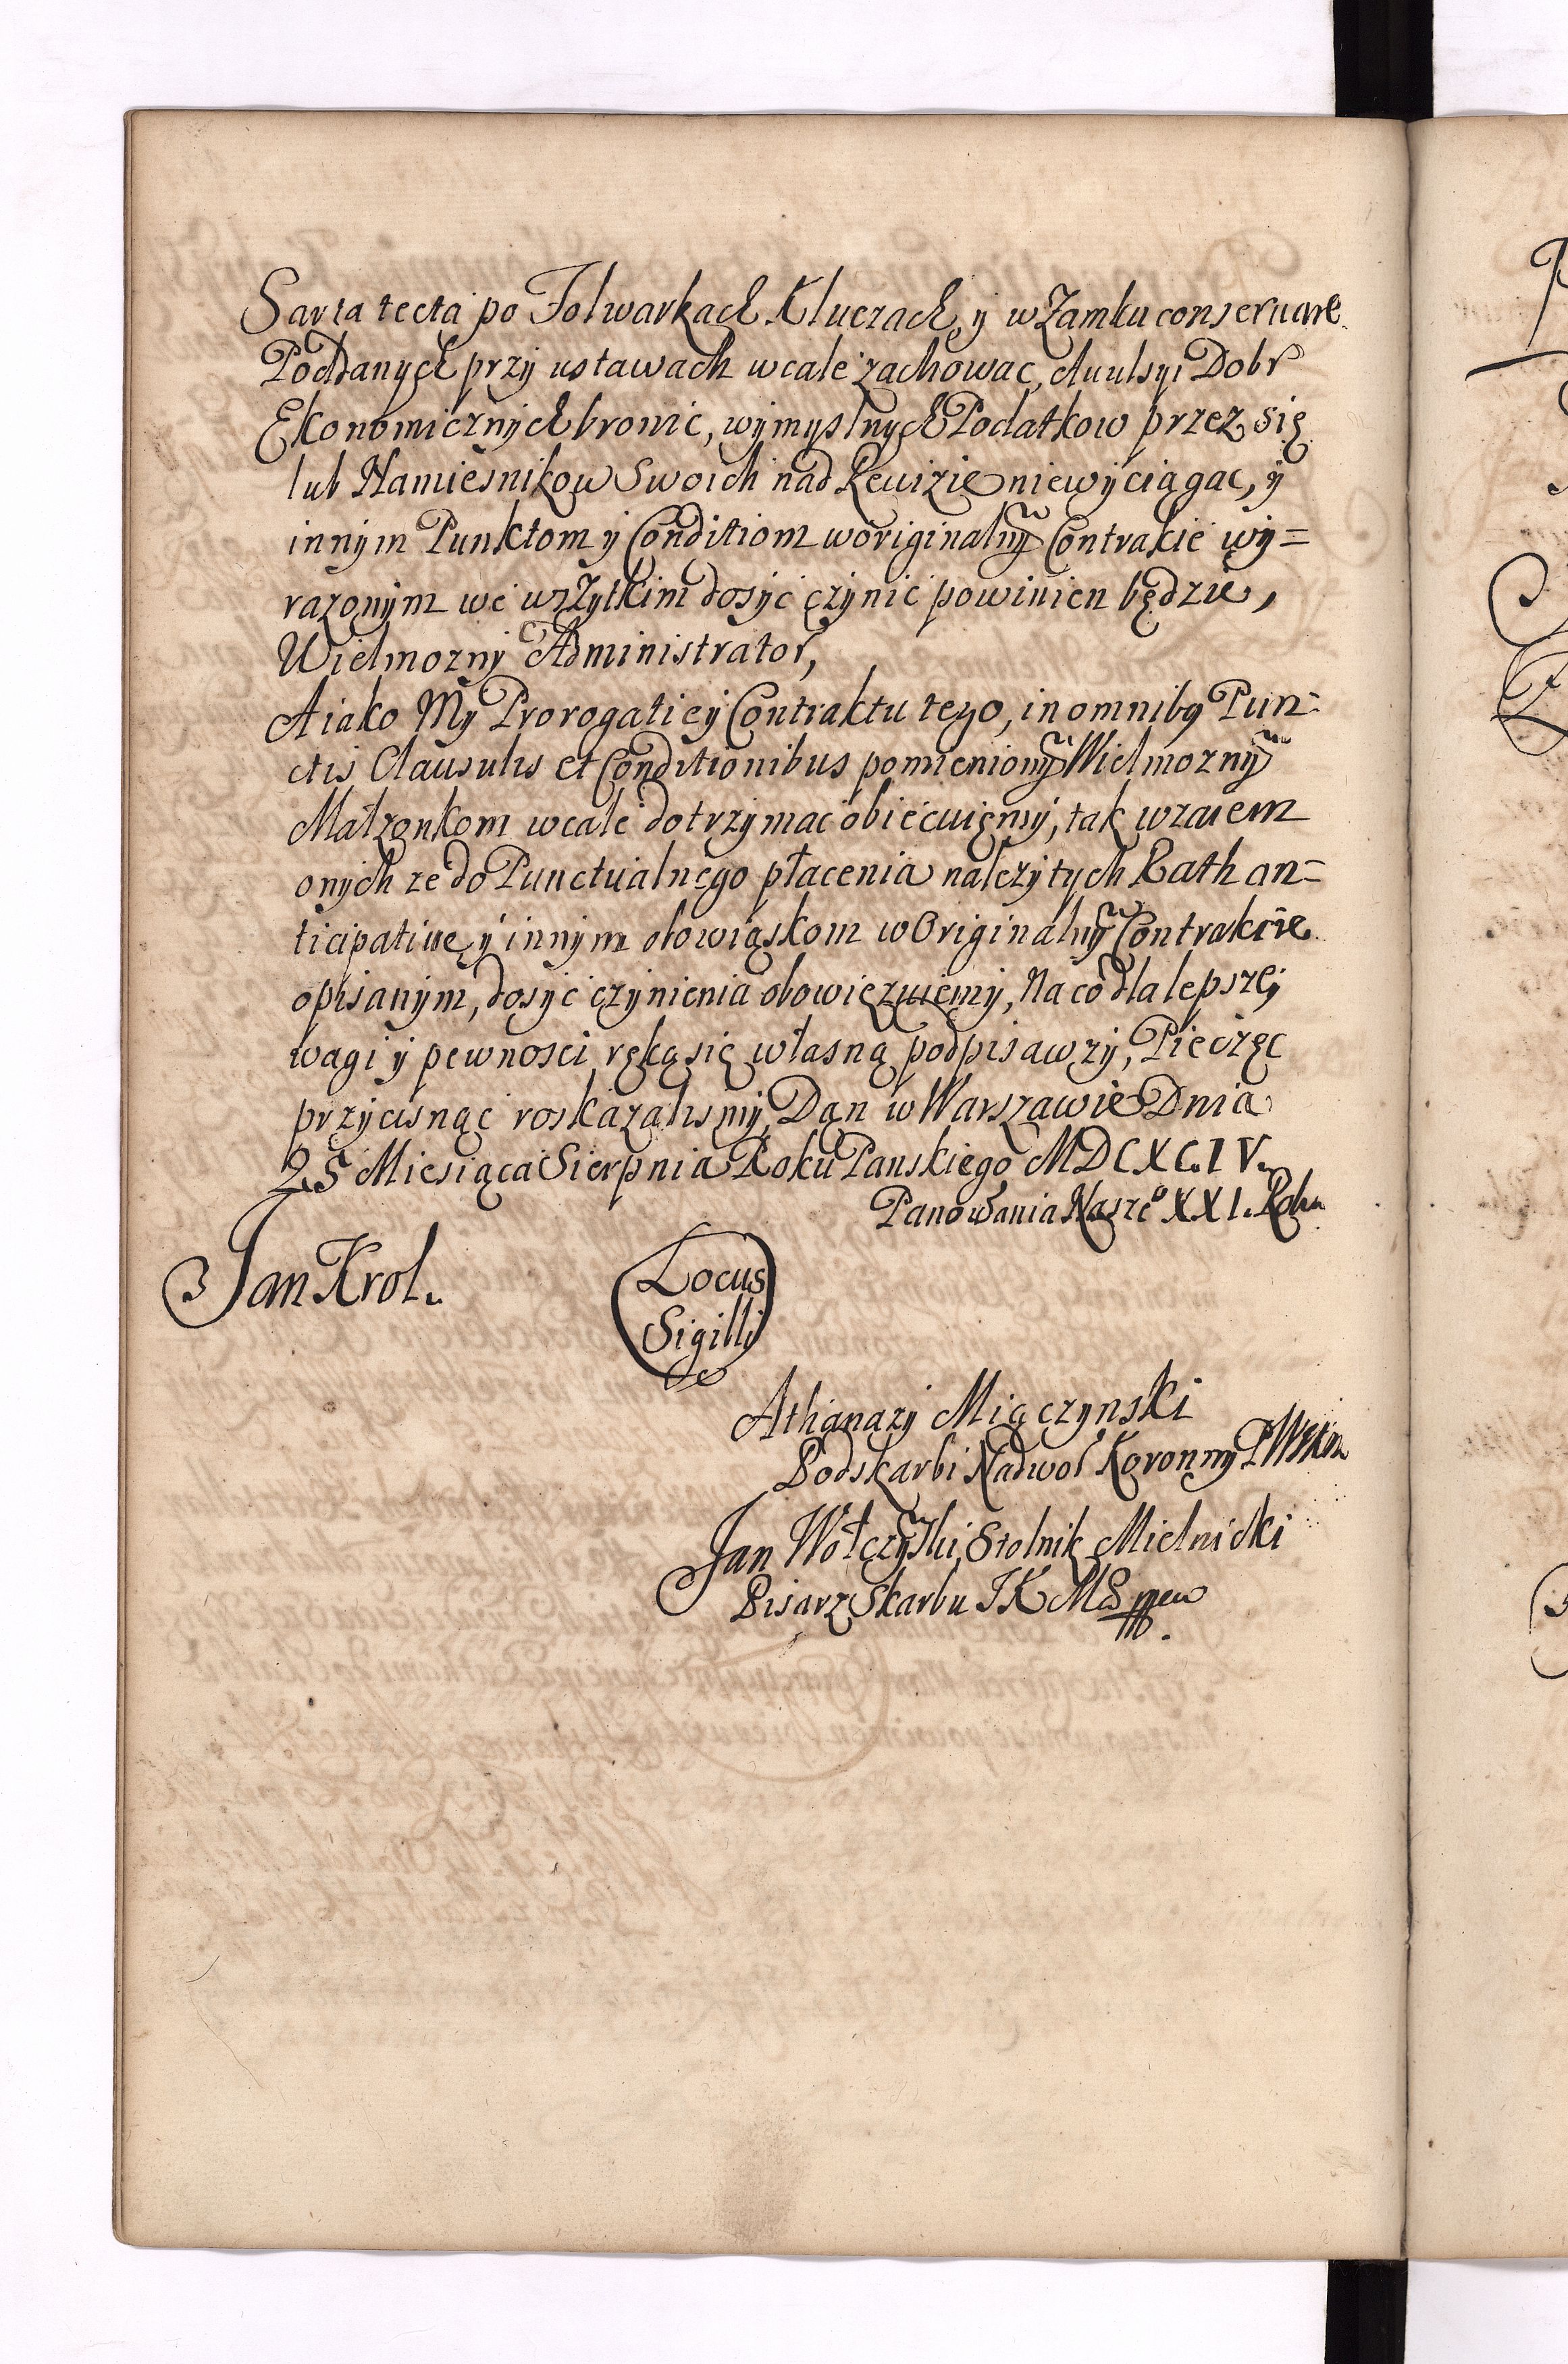 Sarta tecta po Folwarkach Kluczach, y w Zamku conseruare
Poddanych przy ustawach wcale zachowac, Auulsyi Dobr
Ekonomicznych bronic, wymyslnych Podatkow przez się
lub Namiesnikow Swoich nad Rewizie niewyciągac, y
innym Punktom y Conditiom w originalnỹ Contrakcie wy=
razonym we wszytkim dosyć czynić powinien będzie,
Wielmozny Administrator,
A iako My Prorogatiey Contraktu tego, in omnibq Pun=
ctis Clausulis et Conditionibus pomienionỹ Wielmoznỹ
Małzonkom wcale dotrzymac obiecuięmy, tak wzaiem
onych ze do Punctualnego płacenia nalezytych Rath an=
ticipatiue y innym obowiąskom w Originalnỹ Contrakcie
opisanym, dosyć czynienia obowięzuiemy, Na co dla lepszej
wagi y pewnosci ręką się własną podpisawzy, Pieczęc
przycisnąć roskazalismy, Dan w Warszawie Dnia
25 Miesiąca Sierpnia Roku Panskiego MDCXC.IV.
Panowania Naszeo XXI. Roku
Jan Krol.
Locus
Sigilli
Athanazy Miączynski
Podskarbi Nadwor Koronny
Jan Wołczyski Stolnik Mielnicki
Pisarz Skarbu JKM